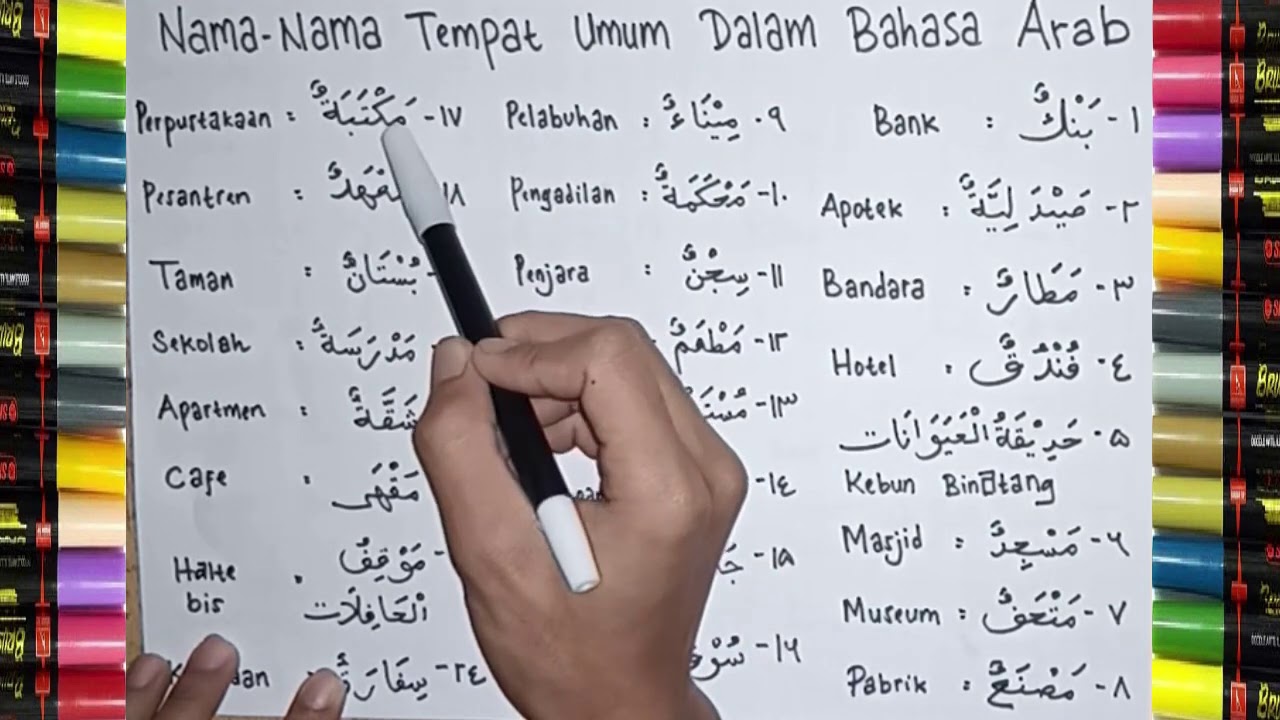 Nama-Nama Tempat Umum Dalam Bahasa Arab
١- بَنْكٌ : Bank
٢- صَيْدَ لِيَّةٌ : Apotek
٣- مَطَارٌ : Bandara
٤- فُنْدُقٌ : Hotel
٥- حَدِيْقَةُ الْحَيَوَانَات
Kebun Binatang
٦- مَسْجِدٌ : Masjid
٧- مَتْحَفٌ : Museum
٨- مَصْنَعٌ : Pabrik
٩- مِيْنَاءٌ : Pelabuhan
١٠- مَحْكَمَةٌ : Pengadilan
١١- سِجْنٌ : Penjara
١٢- مَطْعَمٌ
١٣-
١٤-
١٥-
١٦-
١٧- مَكْتَبَةٌ : Perpurtakaan
Pesantren :
بُسْتَانٌ : Taman
مَدْرَسَةٌ : Sekolah
شَقَّةٌ : Apartmen
مَقْهَى : Cafe
مَوْقِفُ : Halte
الْحَافِلَات bis
٢٤- سِفَارَةٌ :